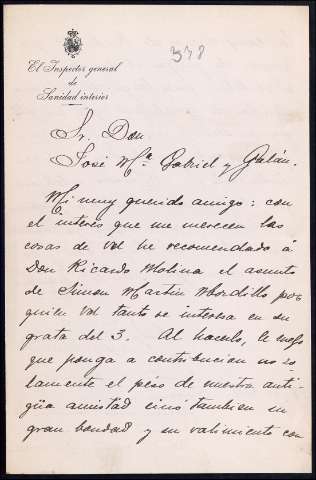 338
El Inspector general
de
Sanidad interior
Sr. Don
José Mª Gabriel y Galán.
Mi muy querido amigo: con
el interes que me merecen las
cosas de Vd he recomendado á
Don Ricardo Molina el asunto
de Simon Martin Mordillo por
quien Vd tanto se interesa en su
grata del 3. Al hacerlo, le
que ponga a contribucion no so-
lamente el peso de nuestra anti-
güa amistad sinó tambien su
gran bondad y su valimiento con